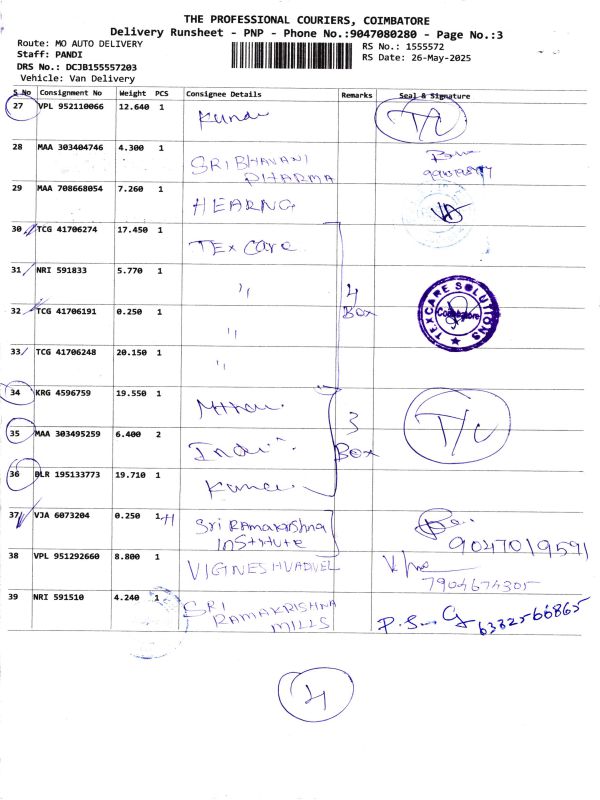 THE PROFESSIONAL COURIERS, COIMBATORE
Delivery Runsheet - PNP - Phone No.:9047080280 - Page No.:3
Route: MO AUTO DELIVERY
RS No.: 1555572
Staff: PANDI
RS Date: 26-May-2025
DRS No.: DCJB155557203
Vehicle: Van Delivery
S No Consignment No Weight PCS Consignee Details Remarks Seal & Signature
27 VPL 952110066 12.640 1
28 MAA 303404746 4.300 1 SRI BHAVANI PHARMA
29 MAA 708668054 7.260 1 HEARNG
30 TCG 41706274 17.450 1 Tex care
31 NRI 591833 5.770 1 "
4 Box
TEXCARE SOLUTIONS
Coimbatore
32 TCG 41706191 0.250 1 "
33 TCG 41706248 20.150 1 "
34 KRG 4596759 19.550 1
3 Box
T/C
35 MAA 303495259 6.400 2
36 BLR 195133773 19.710 1
37 VJA 6073204 0.250 1 Sri Ramakrishna institute 9047019591
38 VPL 951292660 8.800 1 VIGNESHVADIVEL 7904674305
39 NRI 591510 4.240 1 SRI RAMAKRISHNA MILLS P.S 6382566865
4